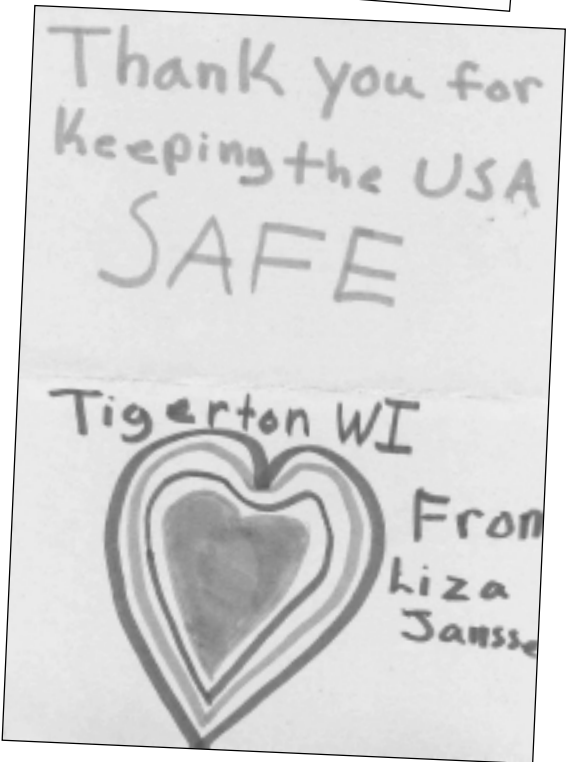 Thank you for
Keeping the USA
SAFE
Tigerton WI
From
Liza
Jansse